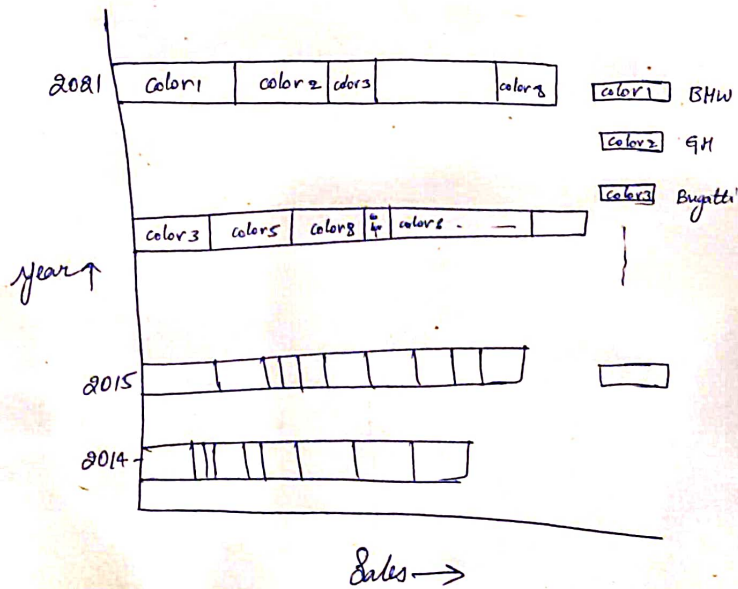 2021 color1 color2 color3 color8
color1 BMW
color2 GM
color3 Bugatti
color3 color5 color8 color6
year
2015
2014
Sales